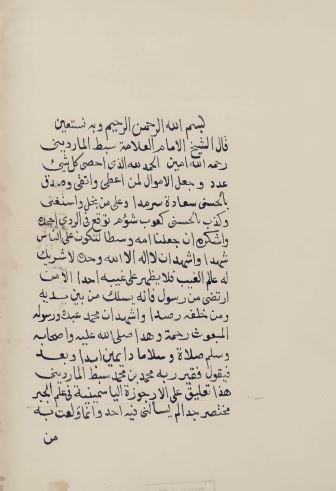 بسم الله الرحمن الرحيم وبه نستعين
قال الشيخ الامام العلامة سبط المارديني
رحمه الله امين الحمد لله الذى احصى كل شئ
عدد وجعل الاموال لمن اعطى واتقى وصدق
بالحسنى سعادة سرمدا وعلى من بخل واستغنى
وكذب بالحسنى شؤم توقع فى الردي احمده
واشكره ان جعلنا امه وسطا لتكون على الناس
شهدا واشهد ان لا اله الا الله وحده لا شريك
له علم الغيب فلا يظهر على غيبه احدا الا من
ارتضى من رسول فانه يسلك من بين يديه
ومن خلفه رصدا واشهد ان محمد عبده ورسوله
المبعوث رحمة وهدا صلى الله عليه واصحابه
وسلم صلاة وسلاما دايمين ابدا وبعد
فيقول فقير ربه محمد بن محمد سبط المارديني
هذا تعليق على الارجوزة الياسمينية فى علم الجبر
مختصر جدا لم يسألنى فيه احد وانما ولعت به
من